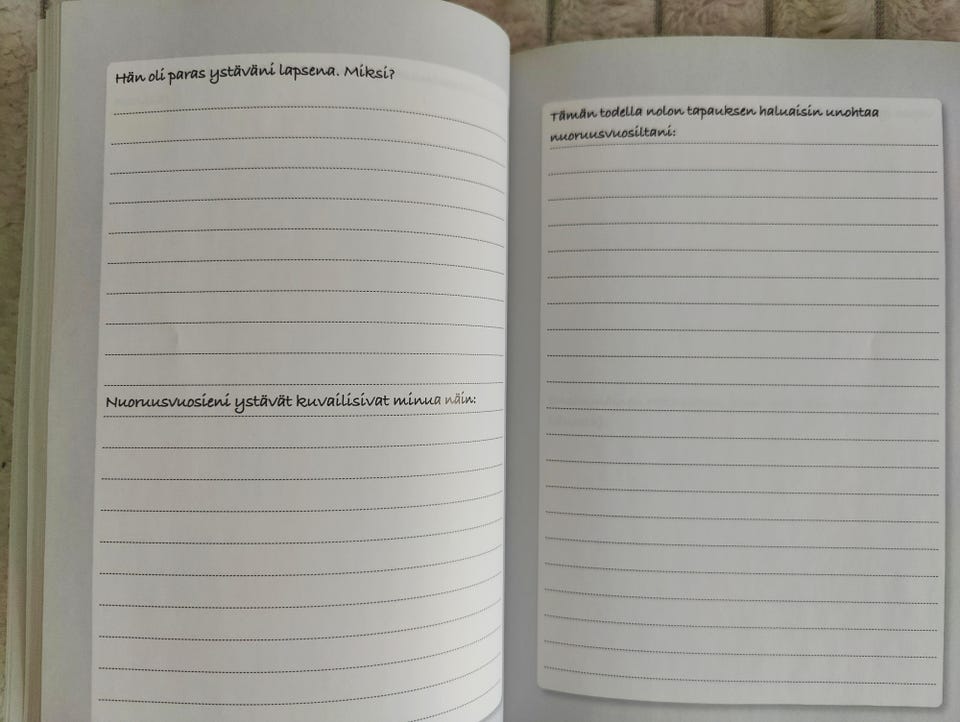 Hän oli paras ystäväni lapsena. Miksi?
Nuoruusvuosieni ystävät kuvailisivat minua näin:
Tämän todella nolon tapauksen haluaisin unohtaa
nuoruusvuosiltani: